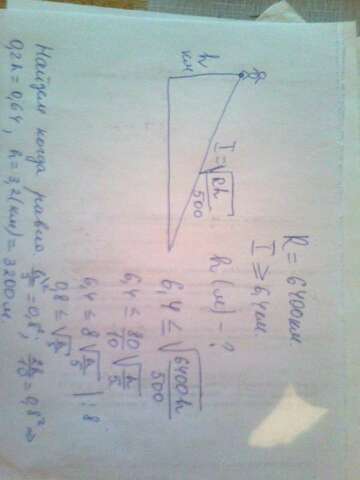 R = 6400км
I ⩾ 6,4км
h(м) - ?
h
км
I = √(Rh/500)
6,4 ≤ √(6400h/500)
6,4 ≤ 80/10 √(h/5)
6,4 ≤ 8√(h/5) | :8
0,8 ≤ √(h/5)
Найдем когда равно = 0,8; = 0,8² ⇒
0,2h = 0,64, h = 3,2(км) = 3200м